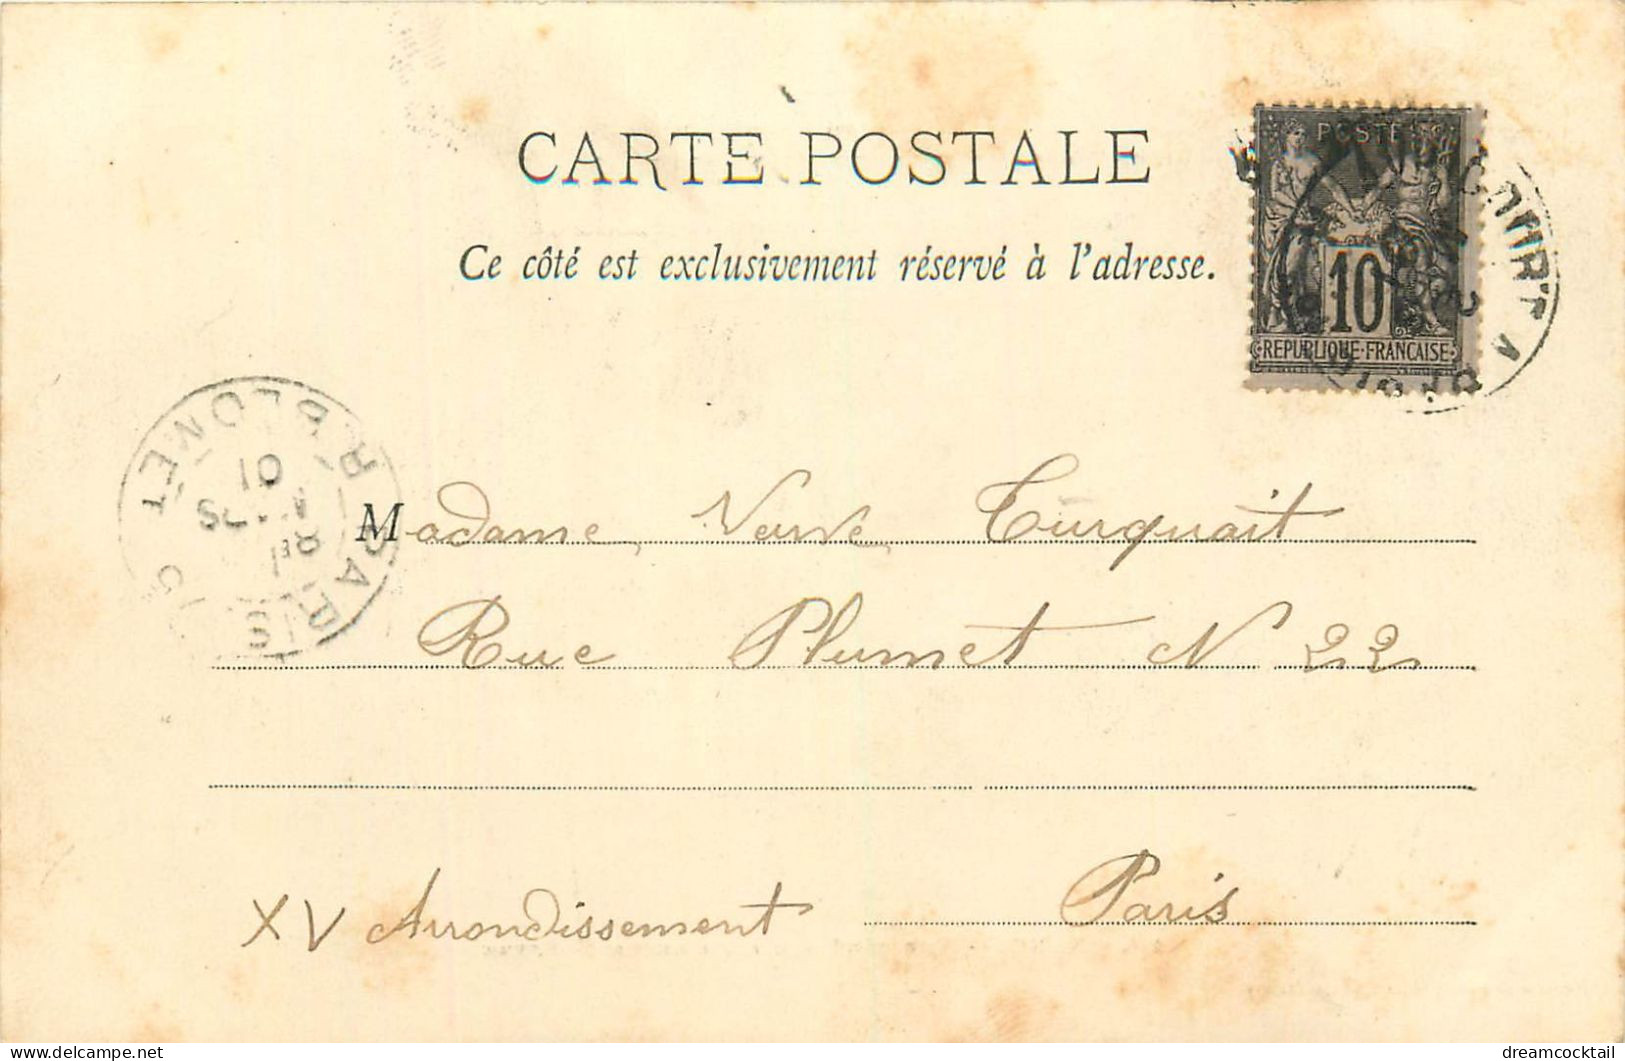 CARTE POSTALE
Ce côté est exclusivement réservé à l'adresse.
POSTES
10
REPUBLIQUE FRANÇAISE
PARIS
R. BLOMET
MARS
01
Madame Veuve Turquait
Rue Plumet N 22
Paris
XV Arrondissement
dreamcocktail